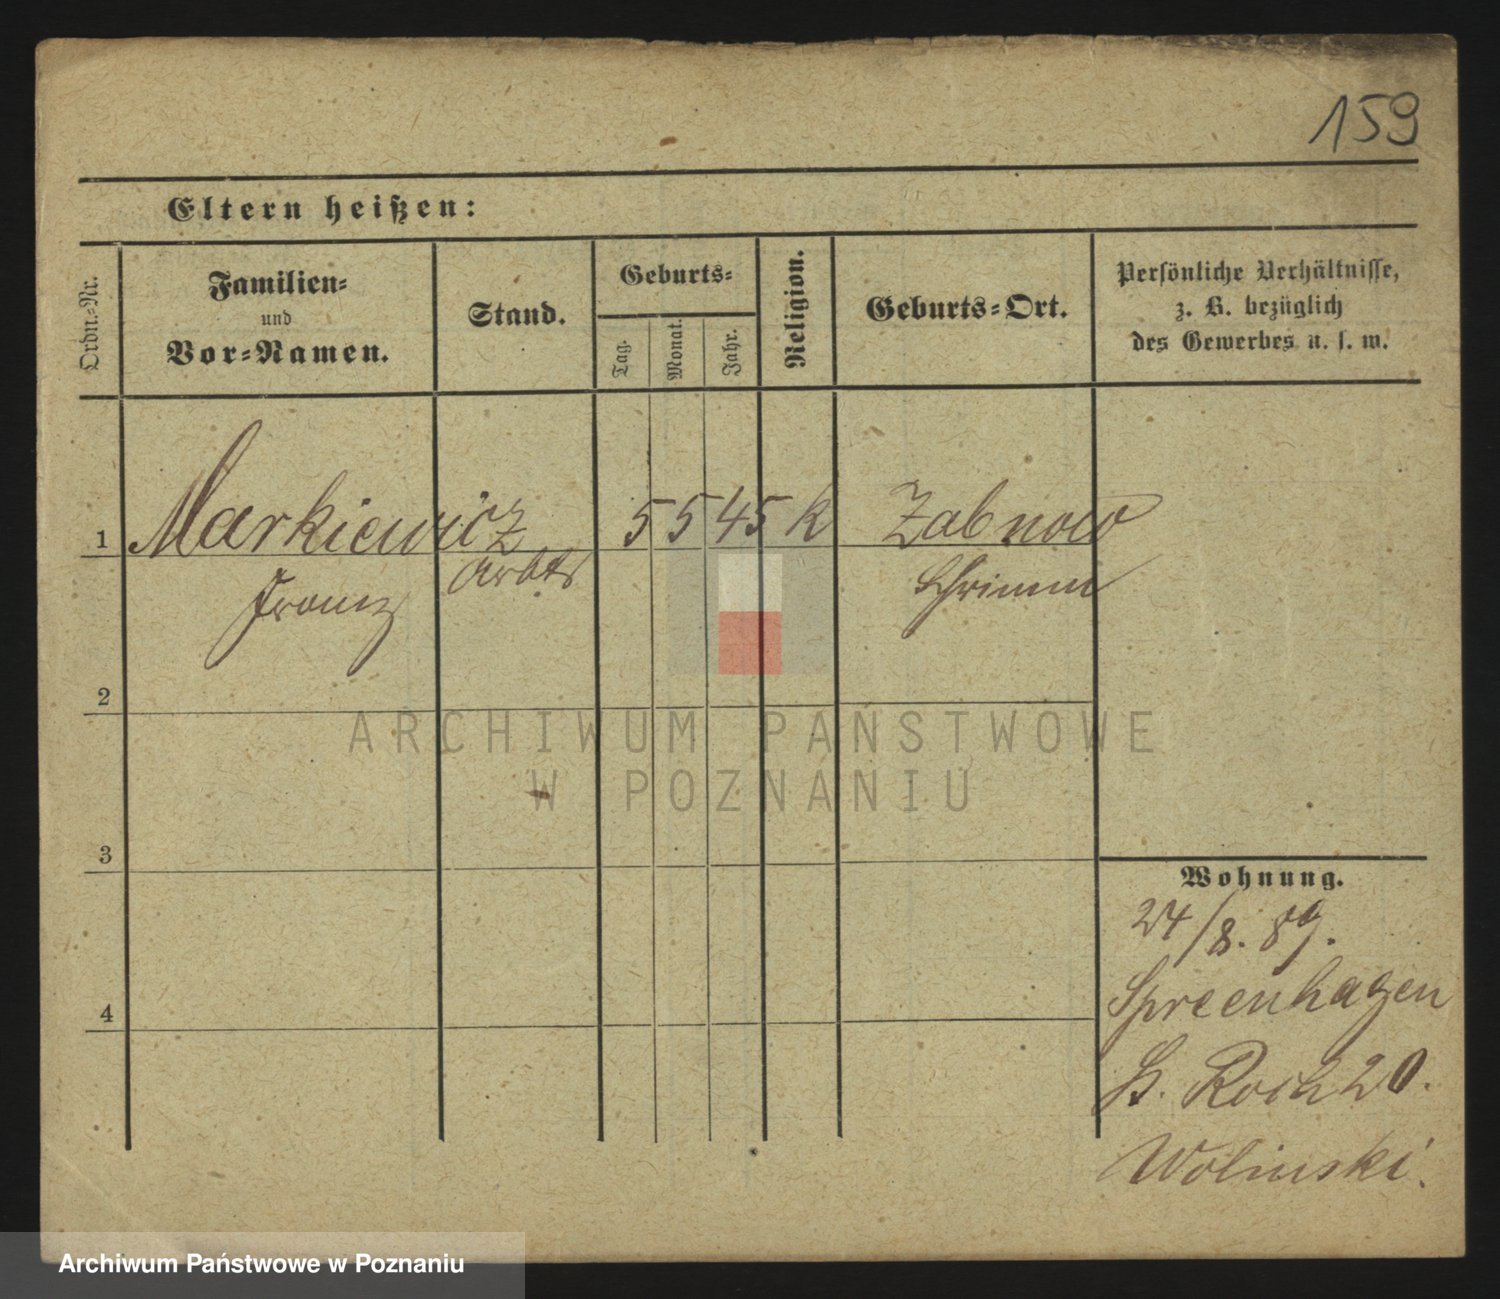 159
Eltern heißen:
Ordn.-Nr.
Familien-
und
Vor-Namen.
Stand.
Geburts-
Tag.
Monat.
Jahr.
Religion.
Geburts-Ort.
Persönliche Verhältnisse,
z. B. bezüglich
des Gewerbes u. s. w.
1 Markiewicz 5 5 45 k Zabnow
Franz Arbtr Schrimm
2
3
4
Wohnung.
24/8. 89.
Spreenhagen
St. Roch 20.
Wolinski.
ARCHIWUM PAŃSTWOWE
W POZNANIU
Archiwum Państwowe w Poznaniu